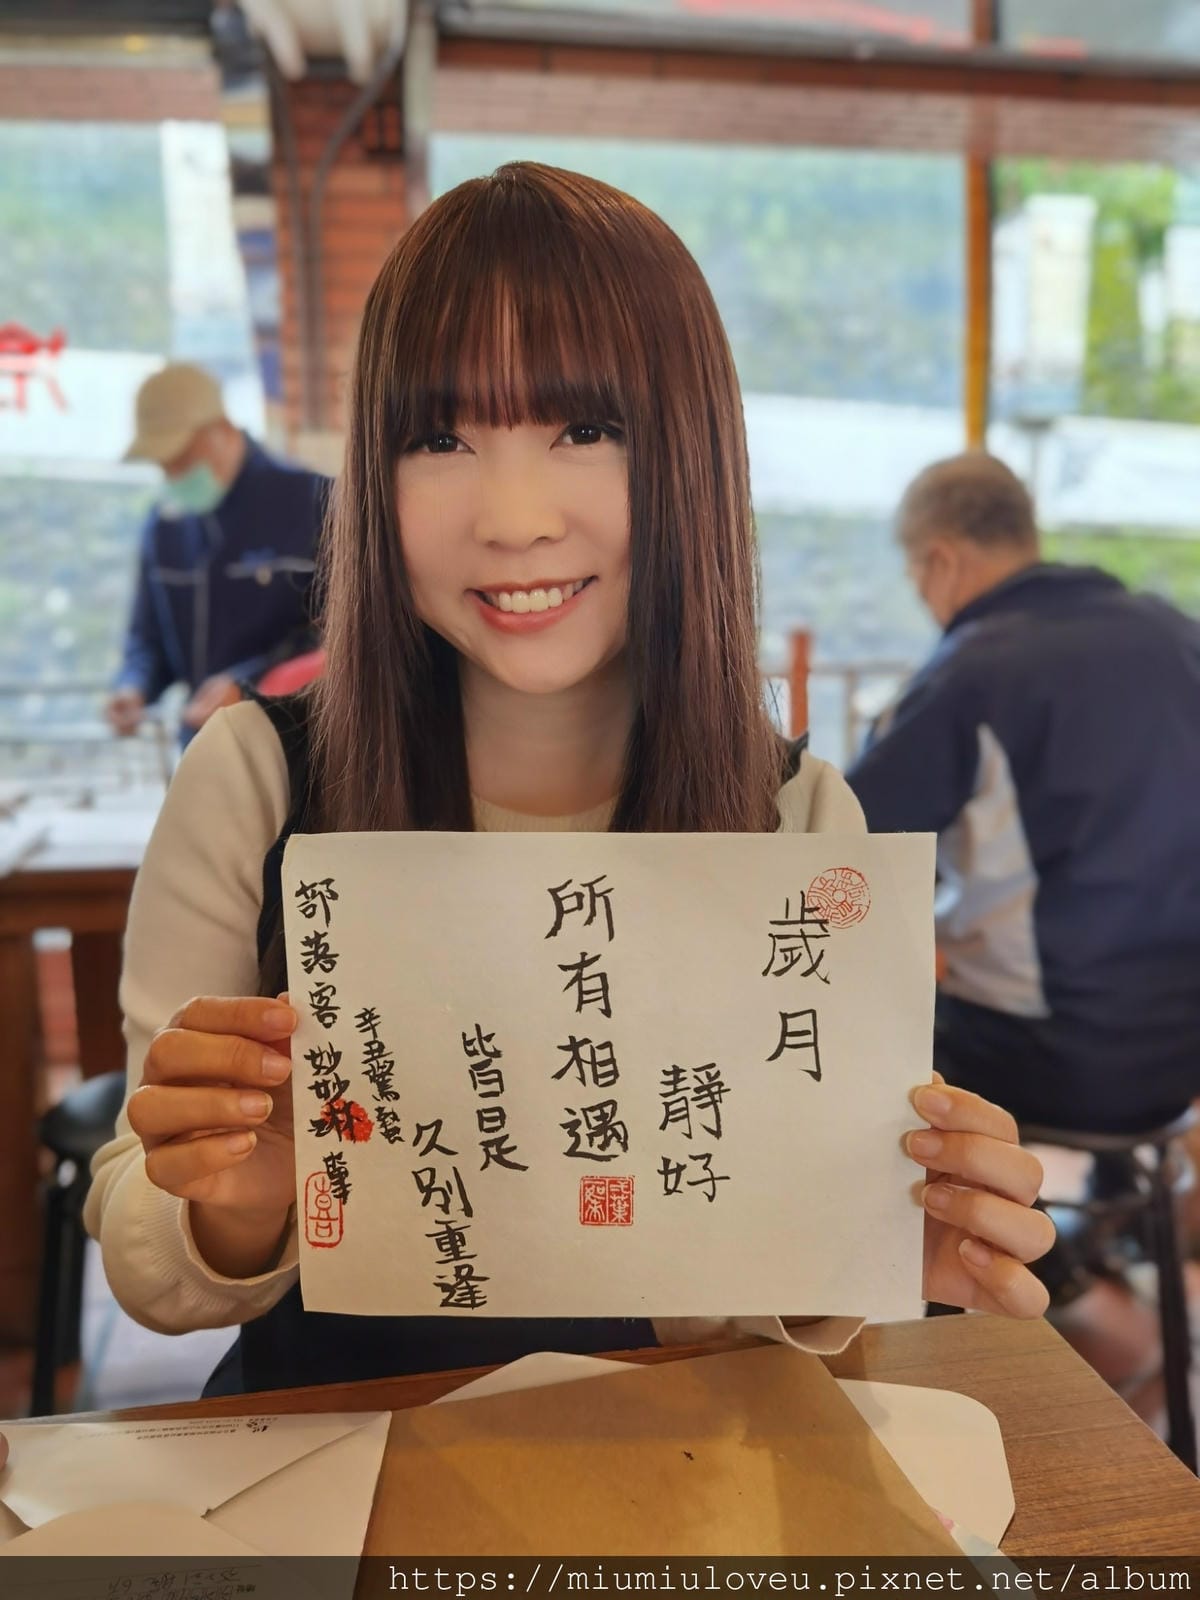 歲月
靜好
所有相遇
皆是
久別重逢
辛丑驚蟄
部落客妙妙琳
https://miumiuloveu.pixnet.net/album